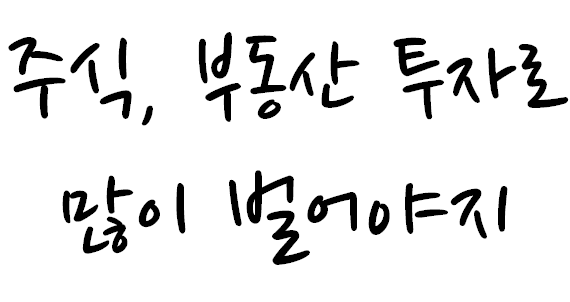 주식, 부동산 투자로
많이 벌어야지